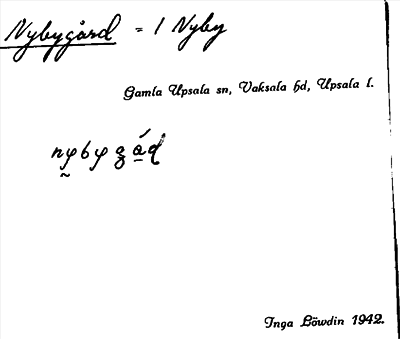 Nybygård = 1 Nyby
Gamla Upsala sn, Vaksala hd, Upsala l.
Inga Löwdin 1942.